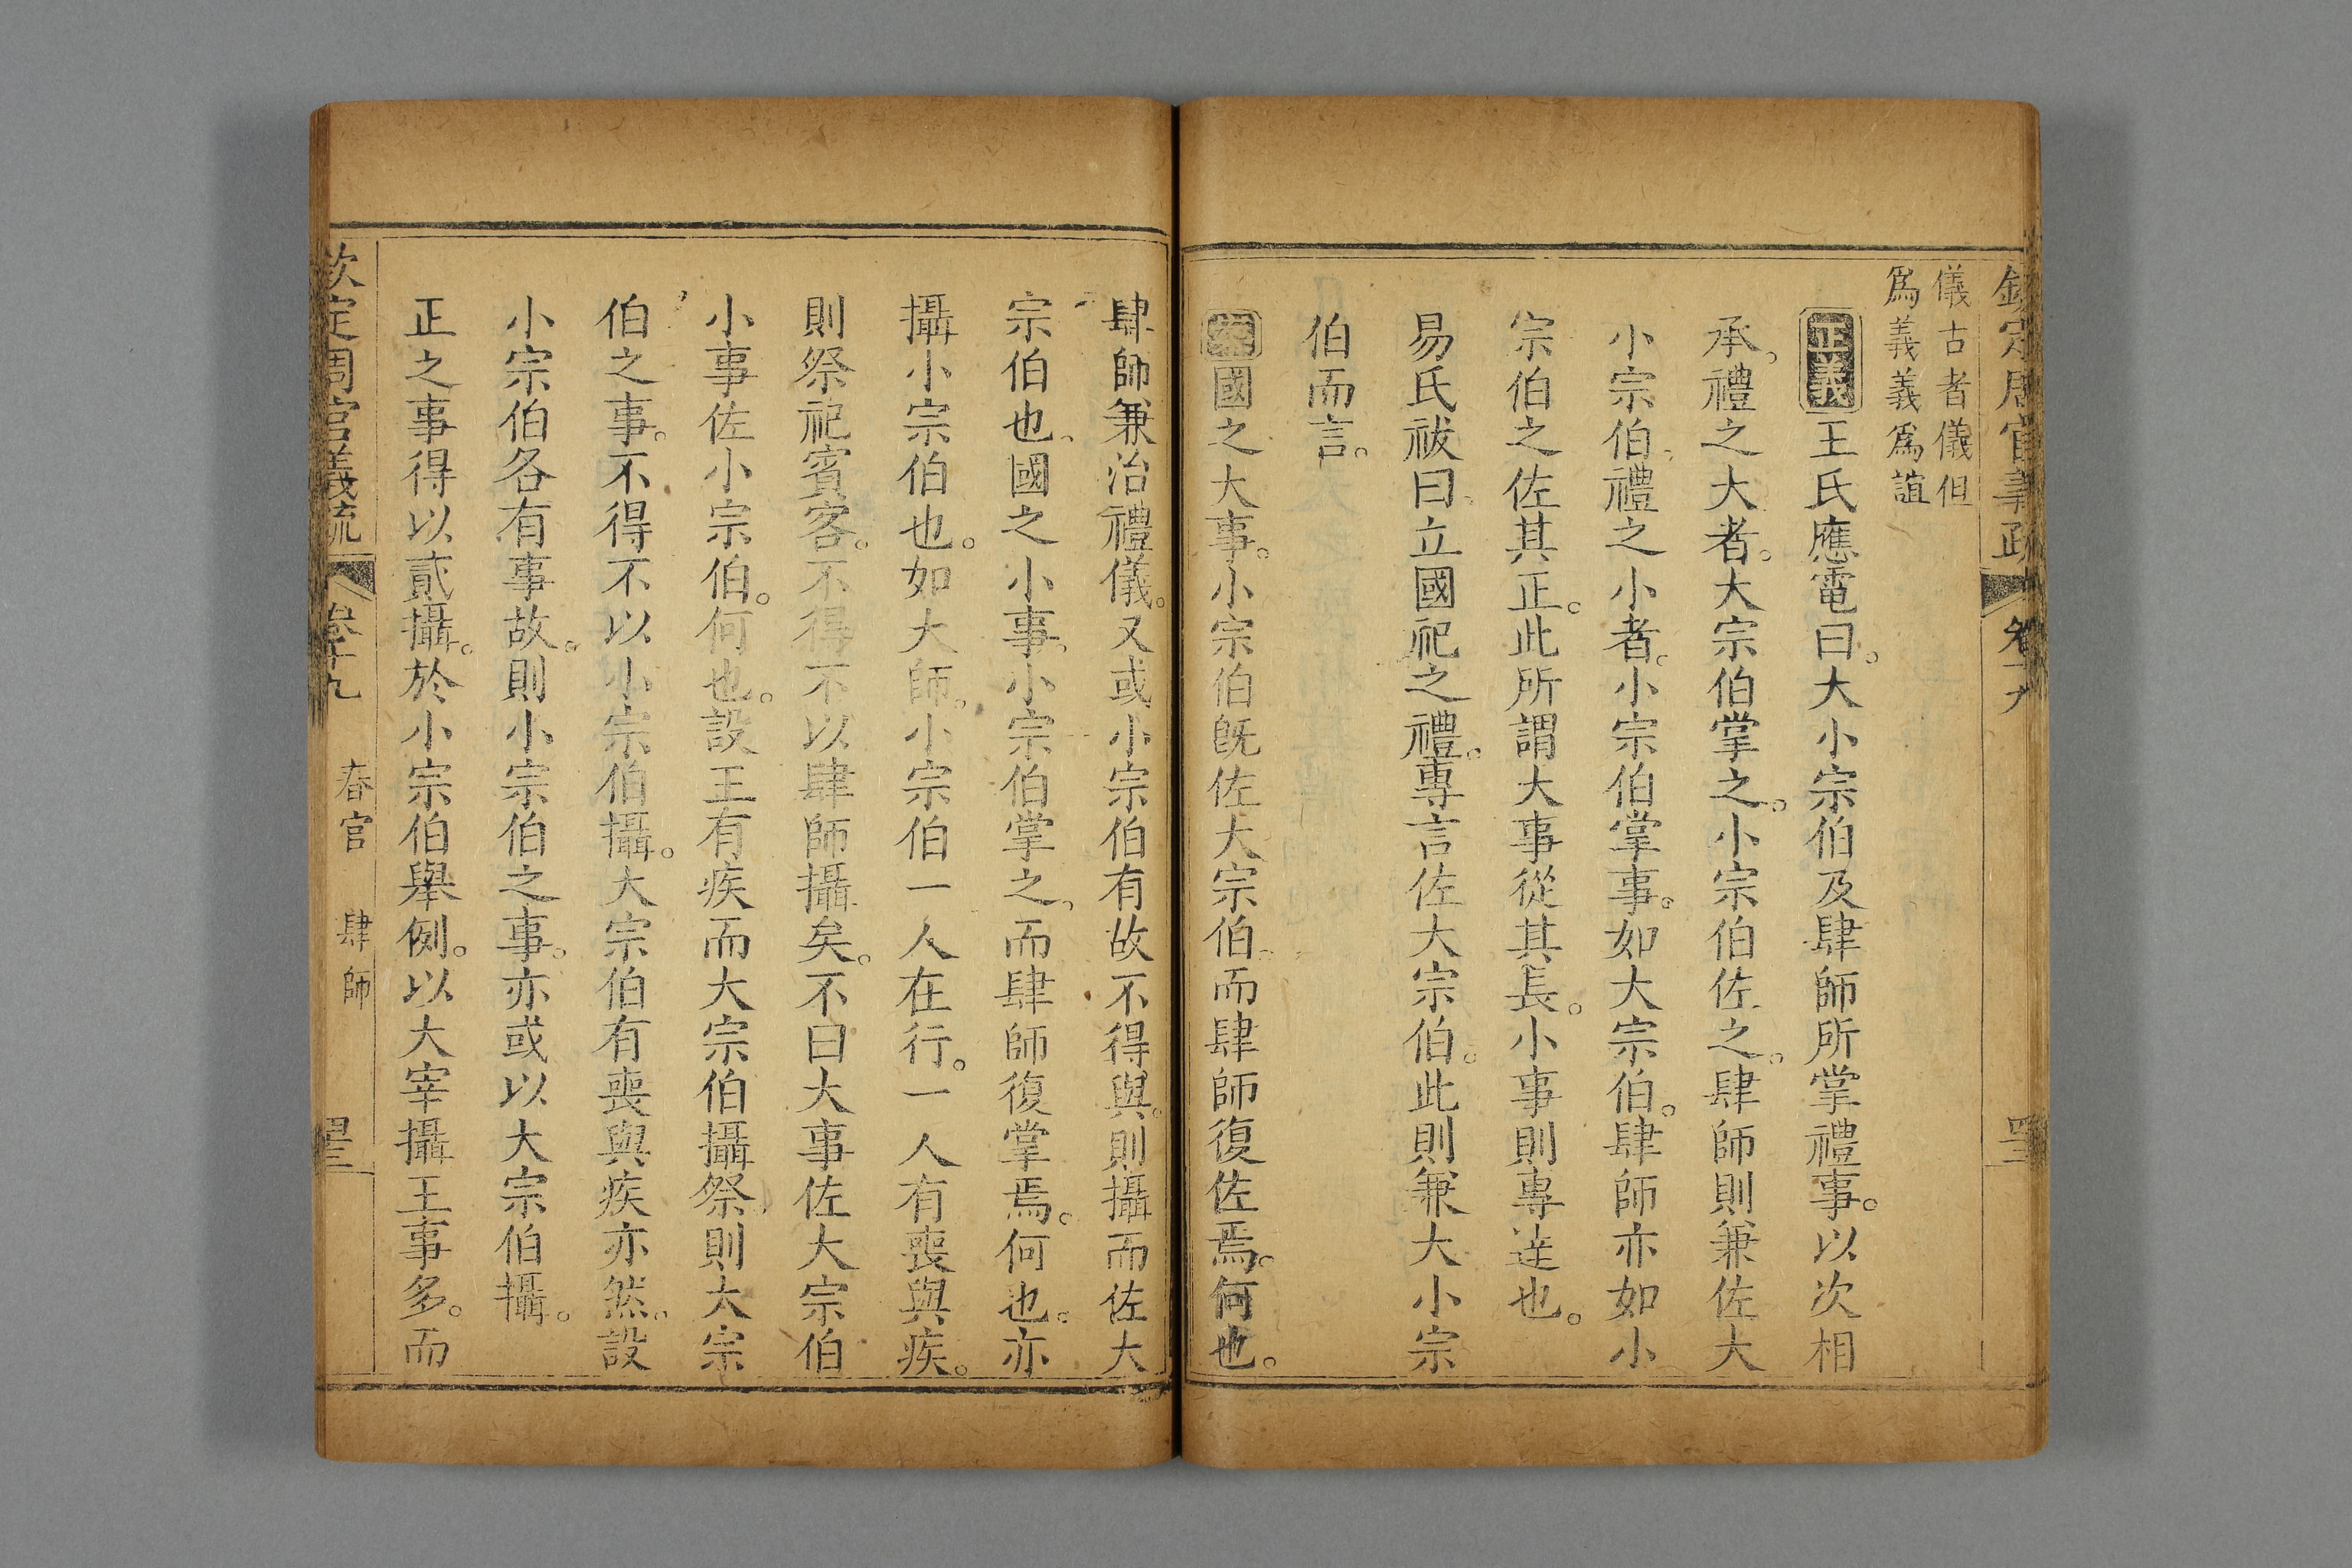 欽定周官義疏 卷十九
儀古者儀但
爲義義爲誼
正義王氏應電曰。大小宗伯及肆師所掌禮事。以次相
承。禮之大者。大宗伯掌之。小宗伯佐之。肆師則兼佐大
小宗伯。禮之小者。小宗伯掌事。如大宗伯。肆師亦如小
宗伯之佐其正。此所謂大事從其長。小事則專達也。
易氏祓曰。立國祀之禮。專言佐大宗伯。此則兼大小宗
伯而言。
國之大事。小宗伯旣佐大宗伯。而肆師復佐焉。何也。
肆師兼治禮儀。又或小宗伯有故不得與。則攝而佐大
宗伯也。國之小事。小宗伯掌之。而肆師復掌焉。何也。亦
攝小宗伯也。如大師。小宗伯一人在行。一人有喪與疾。
則祭祀賓客。不得不以肆師攝矣。不曰大事佐大宗伯
小事佐小宗伯。何也。設王有疾而大宗伯攝祭。則大宗
伯之事。不得不以小宗伯攝。大宗伯有喪與疾亦然。設
小宗伯各有事故。則小宗伯之事。亦或以大宗伯攝。
正之事得以貳攝。於小宗伯舉例。以大宰攝王事多。而
欽定周官義疏 卷十九 春官 肆師